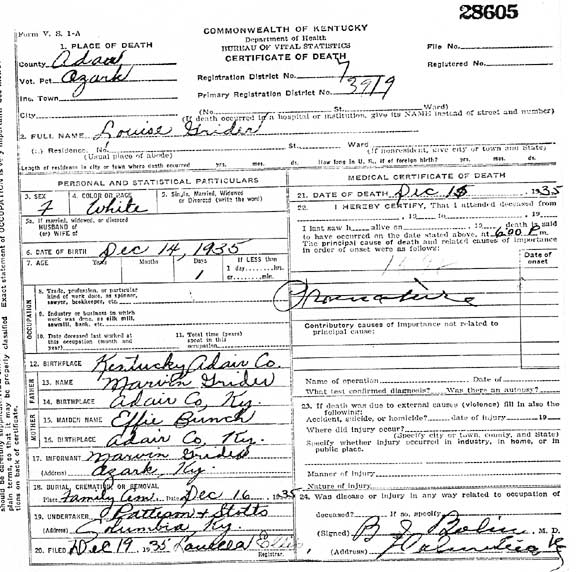 28605
Form V. S. 1-A
COMMONWEALTH OF KENTUCKY
Department of Health
BUREAU OF VITAL STATISTICS
CERTIFICATE OF DEATH
1. PLACE OF DEATH
County Adair
Vot. Pct. Ozark
Inc. Town
City
File No.
Registered No.
Registration District No. 7
Primary Registration District No. 3919
(No. St. Ward)
(If death occurred in a hospital or institution, give its NAME instead of street and number)
2. FULL NAME Louise Grider
(a) Residence. No. St. Ward
(Usual place of abode) (If nonresident, give city or town and State)
Length of residence in city or town where death occurred yrs. mos. ds. How long in U. S., if of foreign birth? yrs. mos. ds.
PERSONAL AND STATISTICAL PARTICULARS
3. SEX F
4. COLOR OR RACE White
5. Single, Married, Widowed or Divorced (write the word)
5a. If married, widowed, or divorced
HUSBAND of
(or) WIFE of
6. DATE OF BIRTH Dec 14, 1935
7. AGE Years Months Days 1
IF LESS than
1 day hrs.
or min.
OCCUPATION
8. Trade, profession, or particular
kind of work done, as spinner,
sawyer, bookkeeper, etc.
9. Industry or business in which
work was done, as silk mill,
sawmill, bank, etc.
10. Date deceased last worked at
this occupation (month and
year)
11. Total time (years)
spent in this
occupation
12. BIRTHPLACE Kentucky Adair Co.
FATHER
13. NAME Marvin Grider
14. BIRTHPLACE Adair Co, Ky.
MOTHER
15. MAIDEN NAME Effie Bunch
16. BIRTHPLACE Adair Co, Ky.
17. INFORMANT Marvin Grider
(Address) Ozark, Ky.
18. BURIAL, CREMATION OR REMOVAL
Place Family Cem. Date Dec 16, 1935
19. UNDERTAKER Patteson + Stotts
(Address) Columbia Ky.
20. FILED Dec 19, 1935
Registrar.
MEDICAL CERTIFICATE OF DEATH
21. DATE OF DEATH Dec 15 1935
22. I HEREBY CERTIFY, That I attended deceased from
, 19 to , 19
I last saw h alive on , 19 , death is said
to have occurred on the date stated above, at 6:00 P. m.
The principal cause of death and related causes of importance
in order of onset were as follows:
Date of
onset
Premature
Contributory causes of importance not related to
principal cause:
Name of operation Date of
What test confirmed diagnosis? Was there an autopsy?
23. If death was due to external causes (violence) fill in also the
following:
Accident, suicide, or homicide? date of injury 19
Where did injury occur?
(Specify city or town, county, and State)
Specify whether injury occurred in industry, in home, or in
public place.
Manner of injury
Nature of injury
24. Was disease or injury in any way related to occupation of
deceased? If so, specify
(Signed) B J Bolin, M. D.
(Address) Columbia Ky
plain terms, so that it may be properly classified. Exact statement of OCCUPATION is very important. See instruc-
tions on back of certificate.